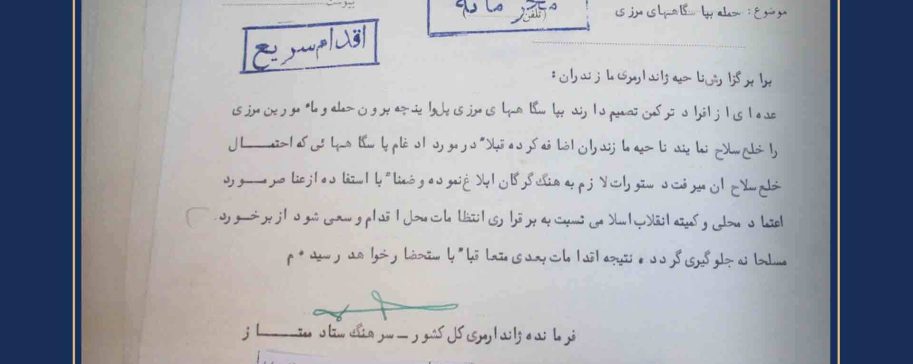 پیوست
محرمانه
(تلفن)
موضوع: حمله بپاسگاههای مرزی
اقدام سریع
برابر گزارش ناحیه ژاندارمری مازندران:
عده ای از افراد ترکمن تصمیم دارند بپاسگاههای مرزی پل واینچه برون حمله و مأمورین مرزی
را خلع سلاح نمایند ناحیه مازندران اضافه کرده قبلاً در مورد ادغام پاسگاههائی که احتمال
خلع سلاح آن میرفت دستورات لازم به هنگ گرگان ابلاغ نموده و ضمناً با استفاده از عناصر مورد
اعتماد محلی و کمیته انقلاب اسلامی نسبت به برقراری انتظامات محل اقدام و سعی شود از برخورد
مسلحانه جلوگیری گردد. نتیجه اقدامات بعدی متعاقباً باستحضار خواهد رسید. م
فرمانده ژاندارمری کل کشور ـ سرهنگ ستاد ممتاز